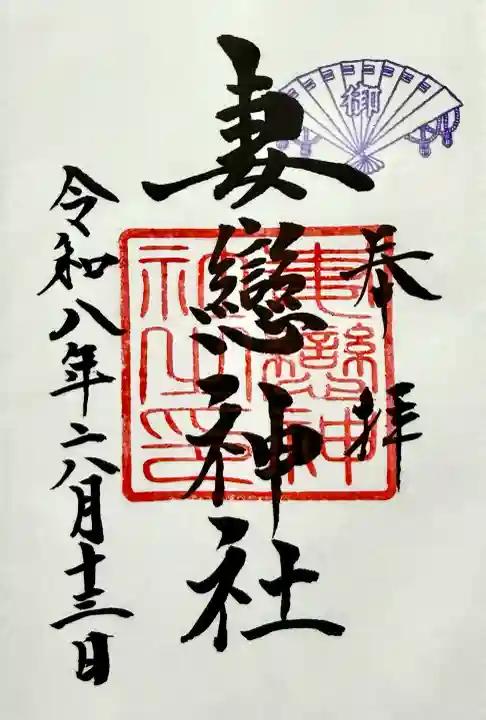 御
奉拝
妻戀神社
妻戀神
社之印
令和八年六月十三日